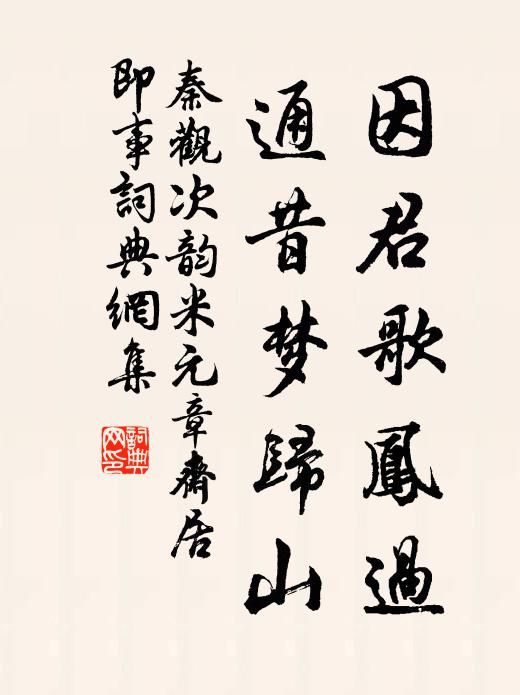 因君歌鳳過
通昔梦歸山
秦觀次韵米元章齋居
即事詞典網集
詞典网印